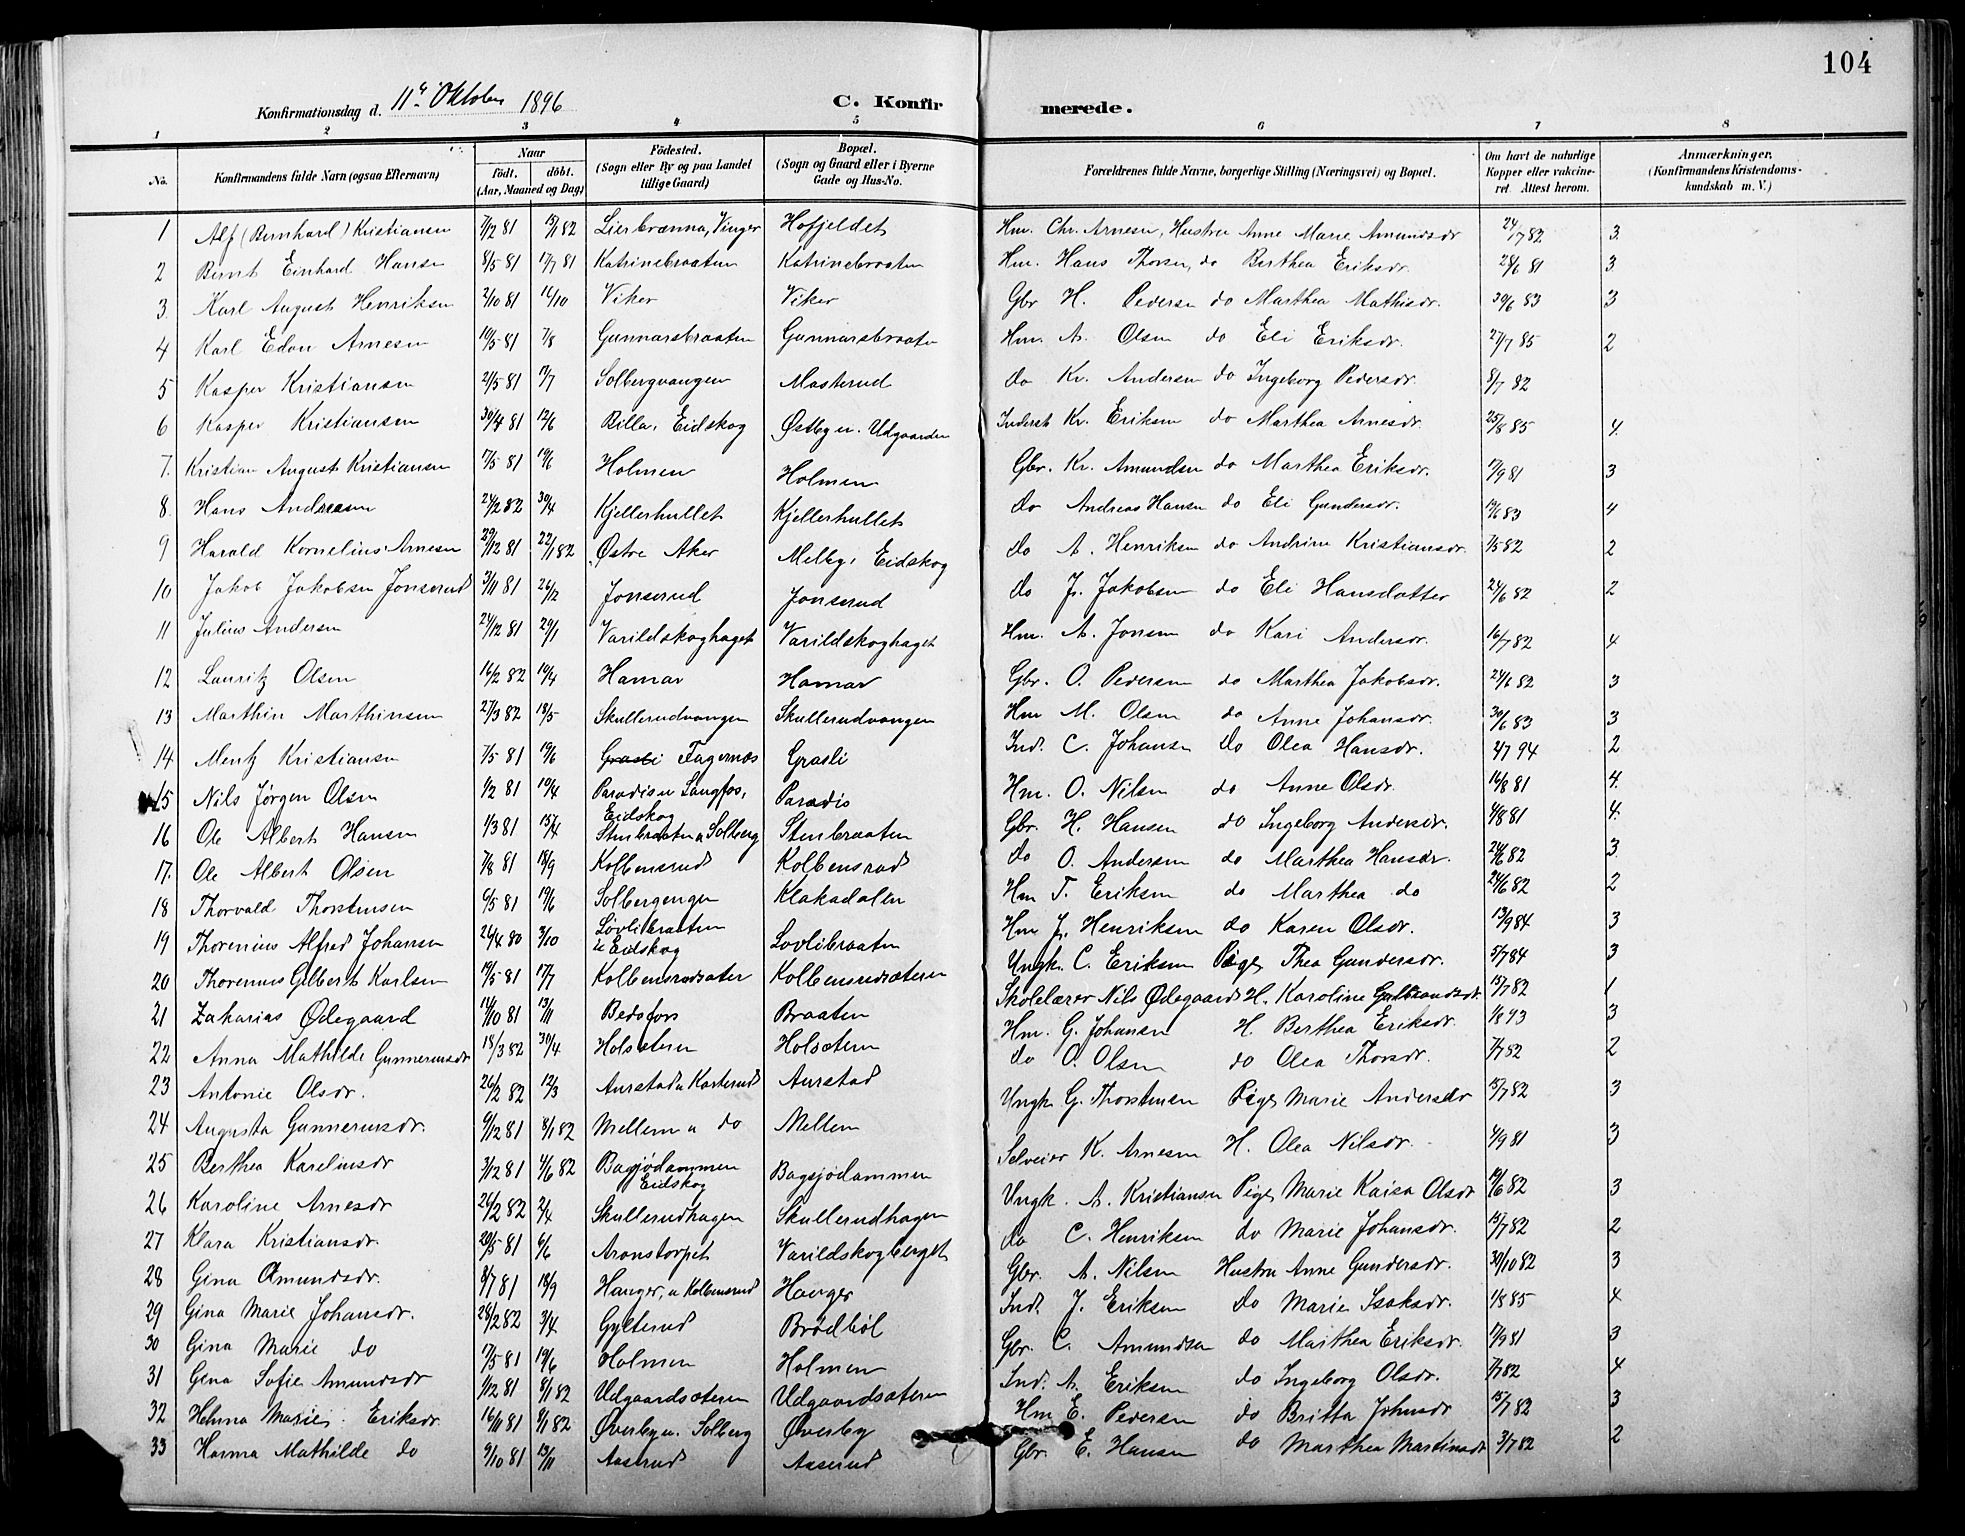 104
Konfirmationsdag d. 11te Oktober 1896 C. Konfirmerede.
1 2 3 4 5 6 7 8
No. Konfirmandens fulde Navn (ogsaa Efternavn) Naar födt. döbt. (Aar, Maaned og Dag) Födested. (Sogn eller By og paa Landet tillige Gaard) Bopæl. (Sogn og Gaard eller i Byerne Gade og Hus-No. Forældrenes fulde Navne, borgerlige Stilling (Næringsvei) og Bopæl. Om havt de naturlige Kopper eller vakcineret. Attest herom. Anmærkninger. (Konfirmandens Kristendomskundskab m. V.)
1 Alf (Bernhard) Kristiansen 7/12 81 15/1 82 Lierbrænna, Vinger Hofjeldet Hm. Chr. Arnesen, Hustru Anne Marie Amundsdr 3
2 Bernt Einhard Hansen 8/5 81 17/7 81 Katrinebraaten Katrinebraaten Hm. Hans Thorsen, do Berthea Eriksdr. 28/6 81 3
3 Karl August Henriksen 2/10 81 16/10 Viker Viker Gbr H. Pedersen do Marthea Mathisdr. 30/6 83 3
4 Karl Edon Arnesen 10/5 81 7/8 Gunnarsbraaten Gunnarsbraaten Hm. A. Olsen do Eli Eriksdr. 27/7 85 2
5 Kasper Kristiansen 2/5 81 17/7 Solbergvangen Masterud do Kr. Andersen do Ingeborg Pedersdr. 8/7 82
6 Kasper Kristiansen 30/4 81 12/6 Billa, Eidskog Østby u. Udgaarden Inderst Kr. Eriksen do Marthea Arnesdr. 25/8 85 4.
7. Kristian August Kristiansen 17/5 81 19/6 Holmen Holmen Gbr. Kr. Amundsen do Marthea Eriksdr. 17/9 81 3
8 Hans Andreasen 24/2 82 30/4 Kjellerhullet Kjellerhullet do Andreas Hansen do Eli Gundersdr. 19/6 83 4
9 Harald Kornelius Arnesen 29/12 81 22/1 82 Østre Aker Melby, Eidskog do A. Henriksen do Andrine Kristiansdr. 7/5 82 2
10 Jakob Jakobsen Jonserud 3/11 81 26/12 Jonserud Jonserud do J. Jakobsen do Eli Hansdatter 24/6 82 2
11 Julius Andersen 24/12 81 29/1 Varildskoghaget Varildskoghaget Hm. A. Jonsen do Kari Andersdr. 16/7 82 4
12 Lauritz Olsen 16/2 82 10/4 Hamar Hamar Gbr. O. Pedersen do Marthea Jakobsdr. 24/6 82 3
13 Marthin Marthinsen 27/3 82 18/5 Skullerudvangen Skullerudvangen Hm M. Olsen do Anne Johansdr. 30/6 83 3
14 Mentz Kristiansen 7/5 81 19/6 Grasli Fagernæs Grasli Ind. C. Johansen do Olea Hansdr. 94 2
15 Nils Jørgen Olsen 1/2 81 10/4 Paradis u Langfos, Eidskog Paradis Hm. O. Nilsen do Anne Olsdr. 16/8 81 4.
16 Ole Albert Hansen 1/3 81 15/4 Stenbraaten u Solberg Stenbraaten Gbr. H. Hansen do Ingeborg Andersdr. 4/8 81 4.
17. Ole Albert Olsen 7/8 81 18/9 Kolbensrud Kolbensrud do O. Andersen do Marthea Hansdr. 24/6 82 3
18 Thorvald Thorstensen 6/5 81 19/6 Solbergengen Klakadalen Hm T. Eriksen do Marthea do 24/6 82 2
19 Thorenius Alfred Johansen 26/4 80 3/10 Løvlibraaten i Eidskog Lovlibraaten Hm J. Henriksen do Karen Olsdr. 13/9 84 3
20 Thorenius Gelbert Karlsen 19/5 81 17/7 Kolbensrudsæter Kolbensrudsæteren Ungk. C. Eriksen Pige Thea Gundersdr. 5/7 84 3
21 Zakarias Ødegaard 14/10 81 13/11 Bedsfors Braaten Skolelærer Nils Ødegaard H. Karoline Gulbrandsdr. 15/7 82 1
22 Anna Mathilde Gunnerusdr 18/3 82 30/4 Holsæteren Holsæteren Hm. G. Johansen H. Berthea Eriksdr. 1/8 93 3
23 Antonie Olsdr. 26/2 82 12/3 Aurstad u Kasterud Aurstad do O. Olsen do Olea Thorsdr. 7/7 82 2
24 Augusta Gunnerusdr. 9/12 81 8/1 82 Mellem u do Mellem Ungk. G. Thorstensen Pige Marie Andersdr 15/7 82 3
25 Berthea Karelinsdr 3/12 81 4/6 82 Bagsjødammen Eidskog Bagsjødammen Selveier K. Arnesen H. Olea Nilsdr. 4/9 81 3
26 Karoline Arnesdr 26/2 82 2/4 Skullerudhagen Skullerudhagen Ungk. A. Kristiansen Pige Marie Kaisa Olsdr 19/6 82 3
27 Klara Kristiansdr. 20/5 81 6/6 Aronstorpet Varildskogberget do C. Henriksen do Marie Johansdr. 15/7 82 2
28 Gina Amundsdr. 8/7 81 18/9 Hanger, u Kolbensrud Hanger Gbr. A. Nilsen Hustru Anne Gundersdr. 30/10 82 3
29 Gina Marie Johansdr. 28/2 82 3/4 Gylterud Brødbøl Ind. J. Eriksen do Marie Isaksdr. 1/8 85 4
30 Gina Marie do 17/5 81 19/6 Holmen Holmen Gbr. C. Amundsen do Marthea Eriksdr. 17/9 81 3
31 Gina Sofie Amundsdr 1/12 81 8/1 82 Udgaardsæteren Udgaardsæteren Ind. A. Eriksen do Ingeborg Olsdr. 82 4
32 Helma Marie Eriksdr 16/11 81 9/1 82 Øverby u. Solberg Øverby Hm E. Pedersen do Britta Johnsdr 15/7 82 3
33 Harma Mathilde do 9/10 81 13/11 Aaserud Aaserud Gbr. E. Hansen do Marthea Martinsdr 3/7 82 2